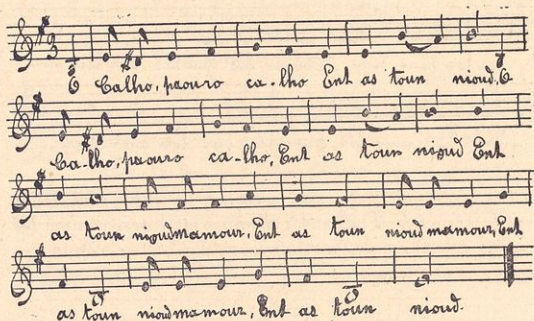 O Calho, paouro ca-lho Ent as toun nioud, O
Ca-lho, paouro ca-lho, Ent as toun nioud Ent
as toun nioud mamour, Ent as toun nioud mamour, Ent
as toun nioud mamour, Ent as toun nioud.